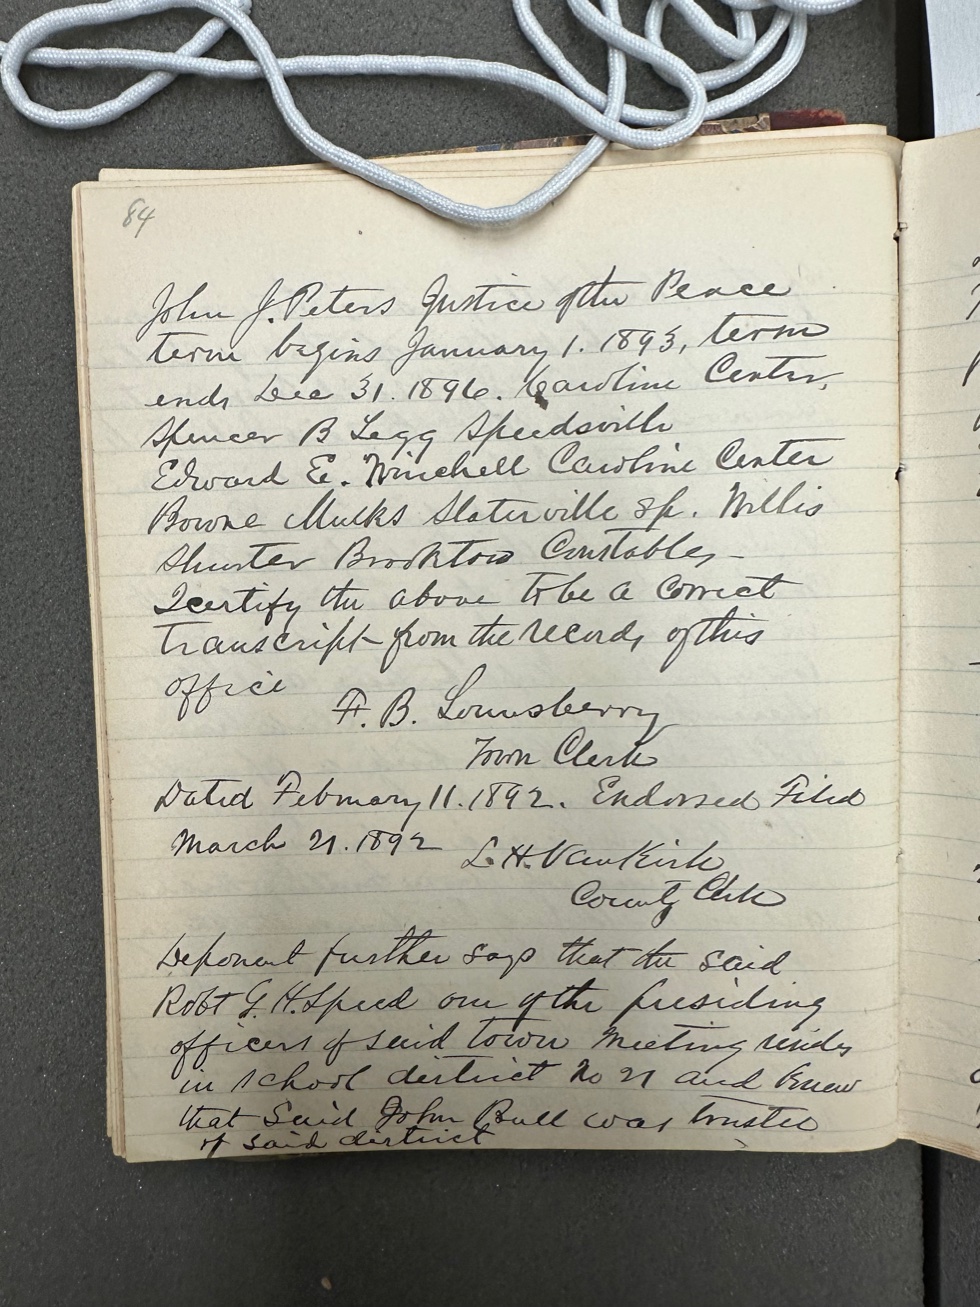 84
John J. Peters Justice of the Peace
term begins January 1. 1893, term
ends Dec 31. 1896. Caroline Center,
Spencer B Legg Speedsville
Edward E. Winchell Caroline Center
Bowne Mulks Slaterville Sp. Willis
Shurter Brookton Constables –
I certify the above to be a correct
transcript from the records of this
office
F. B. Lounsberry
Town Clerk
Dated February 11. 1892. Endorsed Filed
March 21. 1892
L. H. VanKirk
County Clerk
Deponent further says that the said
Robt G. H. Speed one of the presiding
officers of said town meeting resides
in school district No 21 and knew
that said John Bull was trustee
of said district